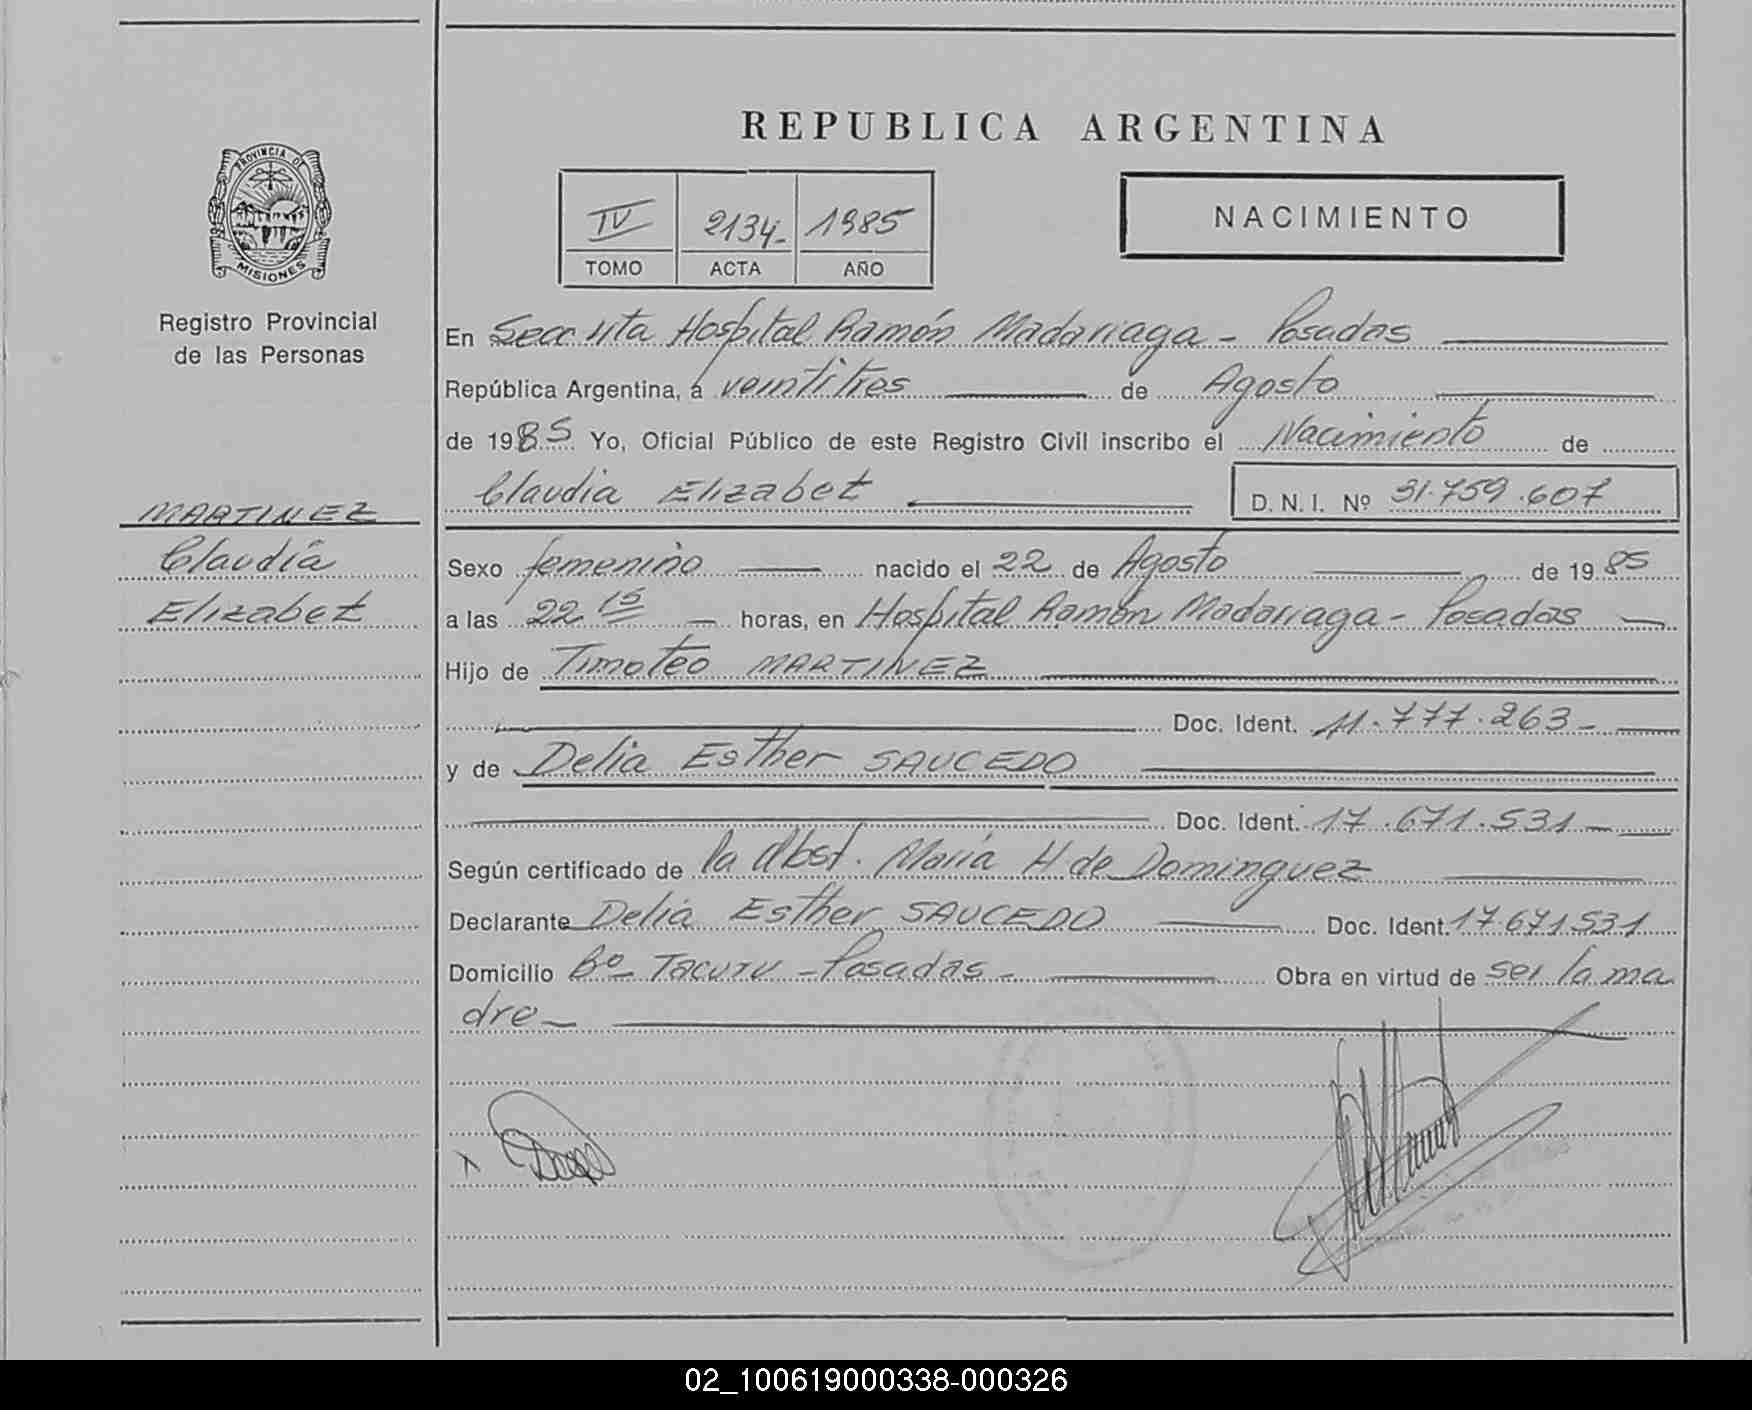 REPUBLICA ARGENTINA
PROVINCIA DE
MISIONES
Registro Provincial
de las Personas
IV 2134- 1985
TOMO ACTA AÑO
NACIMIENTO
En Secc 4ta Hospital Ramón Madariaga - Posadas
República Argentina, a veintitres de Agosto
de 1985 Yo, Oficial Público de este Registro Civil inscribo el Nacimiento de
Claudia Elizabet
D. N. I. Nº 31.759.607
MARTINEZ
Claudia
Elizabet
Sexo femenino nacido el 22 de Agosto de 1985
a las 22 15 horas, en Hospital Ramón Madariaga - Posadas
Hijo de Timoteo MARTINEZ
Doc. Ident. 11.777.263-
y de Delia Esther SAUCEDO
Doc. Ident. 17.671.531-
Según certificado de la Obst. María H de Dominguez
Declarante Delia Esther SAUCEDO Doc. Ident. 17.671.531
Domicilio Bº Tacuru - Posadas - Obra en virtud de ser la ma
dre-
02_100619000338-000326